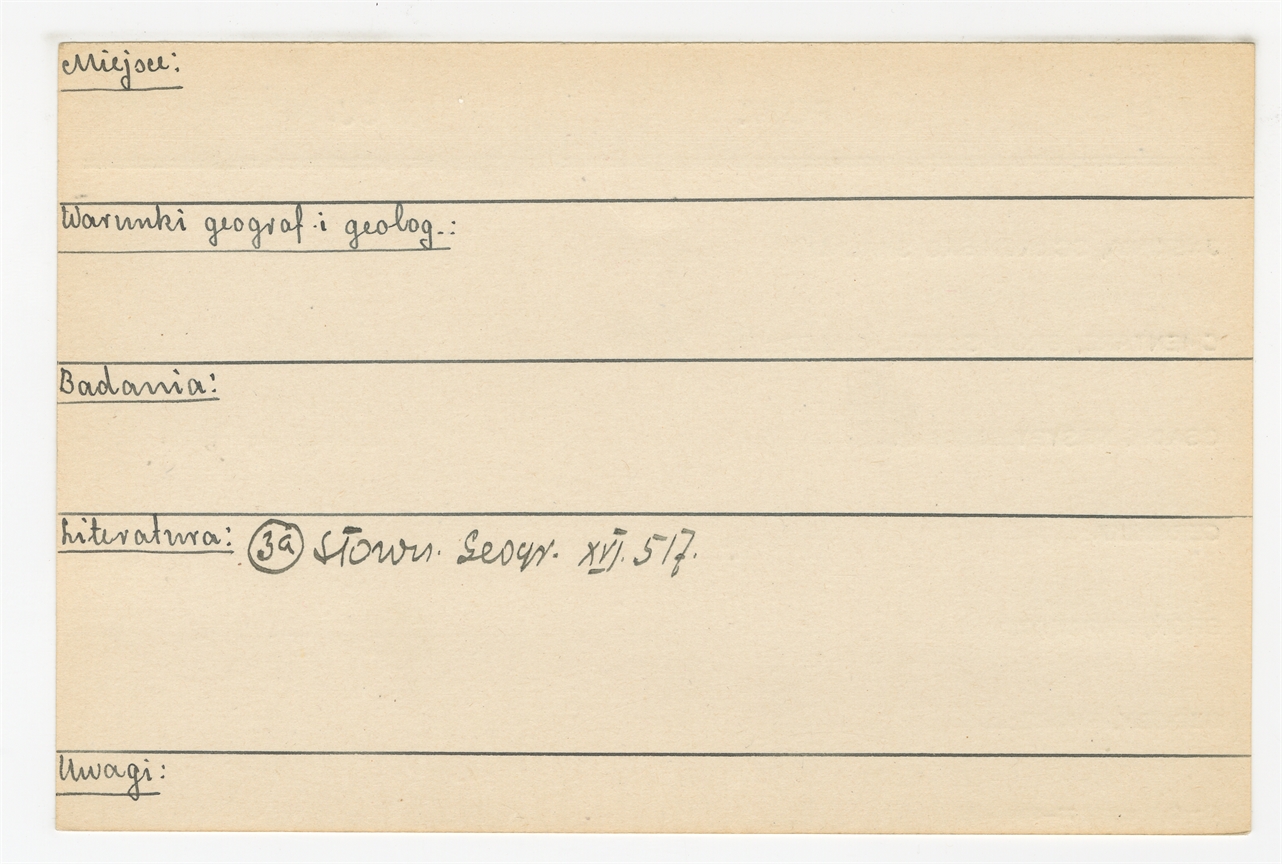 Miejsce:
Warunki geograf. i geolog.:
Badania:
Literatura: 3a Słown. Geogr. XVI. 517.
Uwagi: